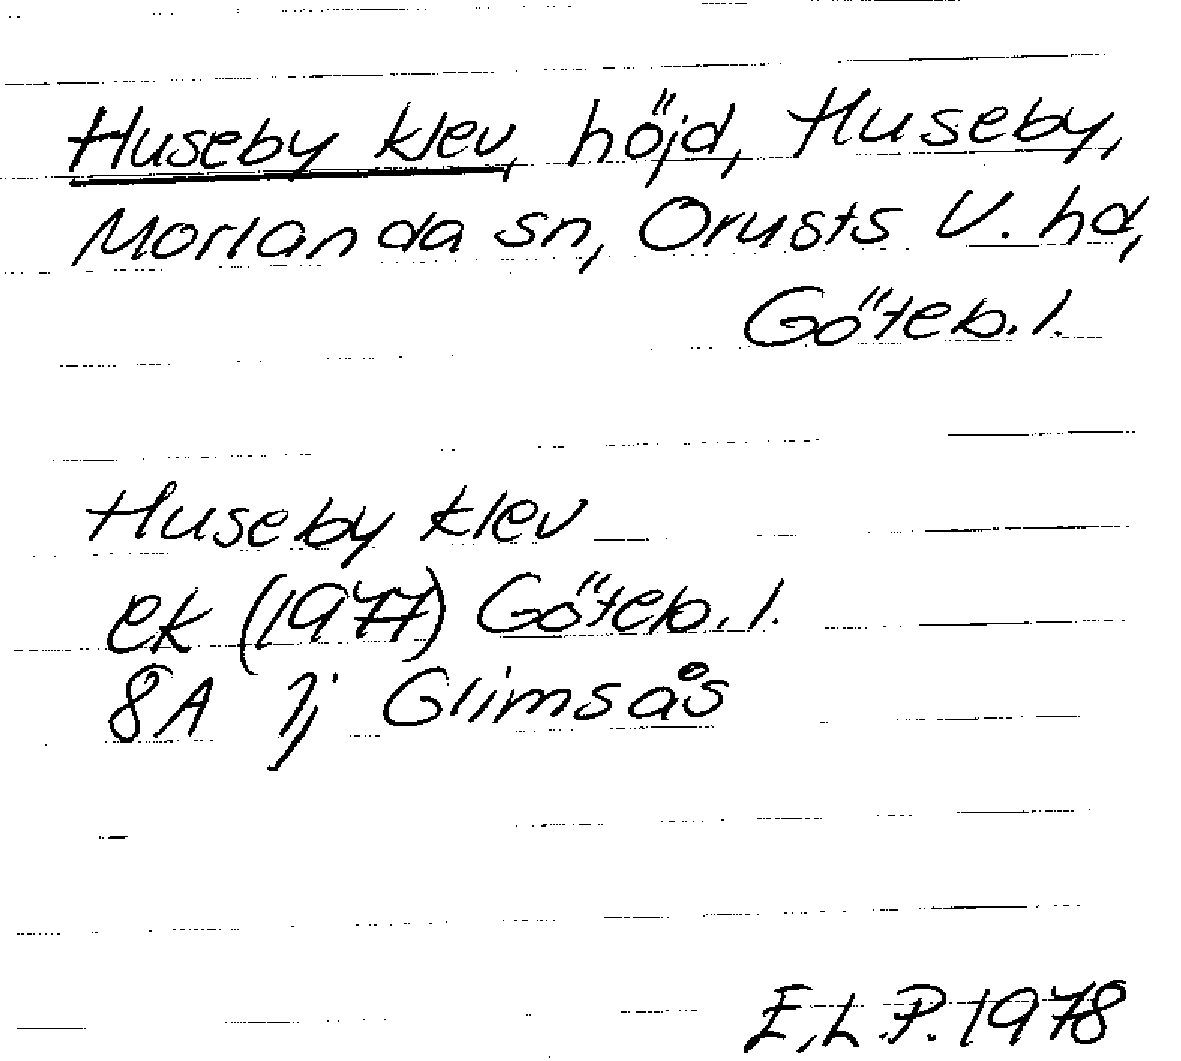 Huseby klev, höjd, Huseby,
Morlanda sn, Orusts V. hd,
Göteb. l.
Huseby klev
ek (1977) Göteb. l.
8A 1j Glimsås
E.L.P. 1978